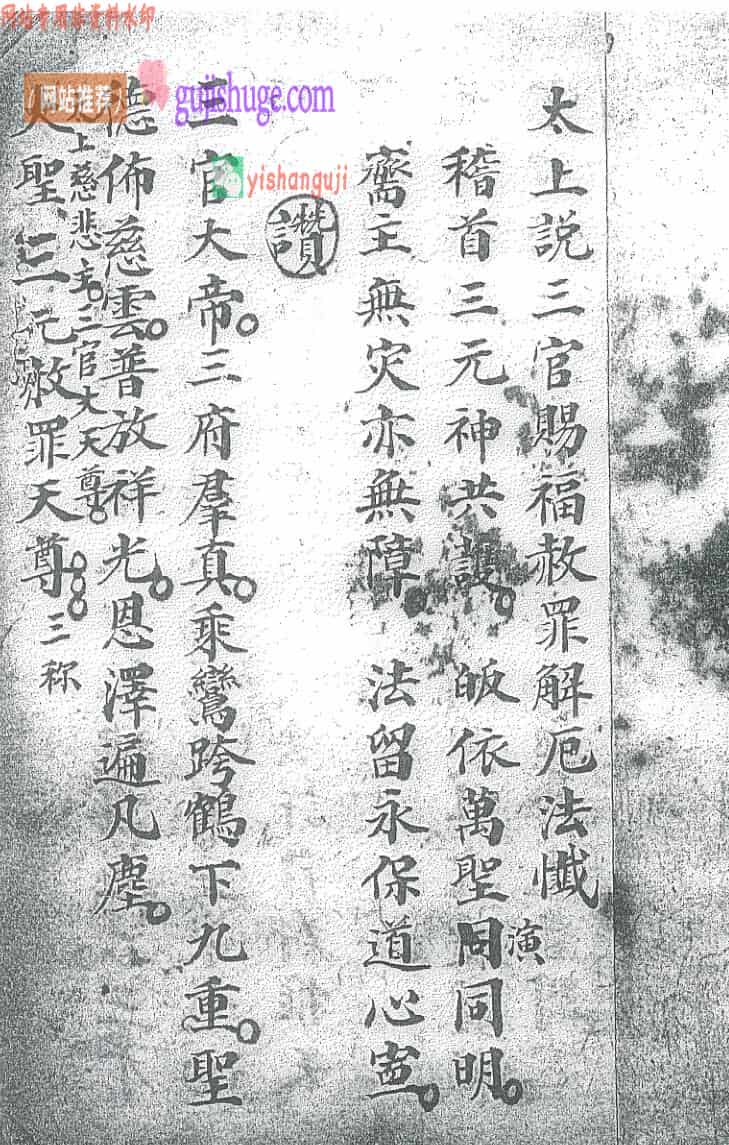 网站专用推荐料水印
网站推荐
gujishuge.com
yishanguji
太上説三官賜福赦罪解厄法懺
稽首三元神共護。皈依萬聖同同明。
演
齋主無灾亦無障 法留永保道心堅。
讚
三官大帝。三府羣真。乘鸞跨鶴下九重。聖
德佈慈雲。普放祥光。恩澤遍凡塵。
上慈悲主。三官大天尊。
大聖三元赦罪天尊。三称